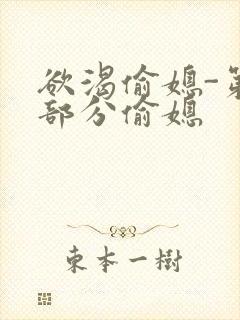 欲渴偷媳-第
部分偷媳
東本一樹